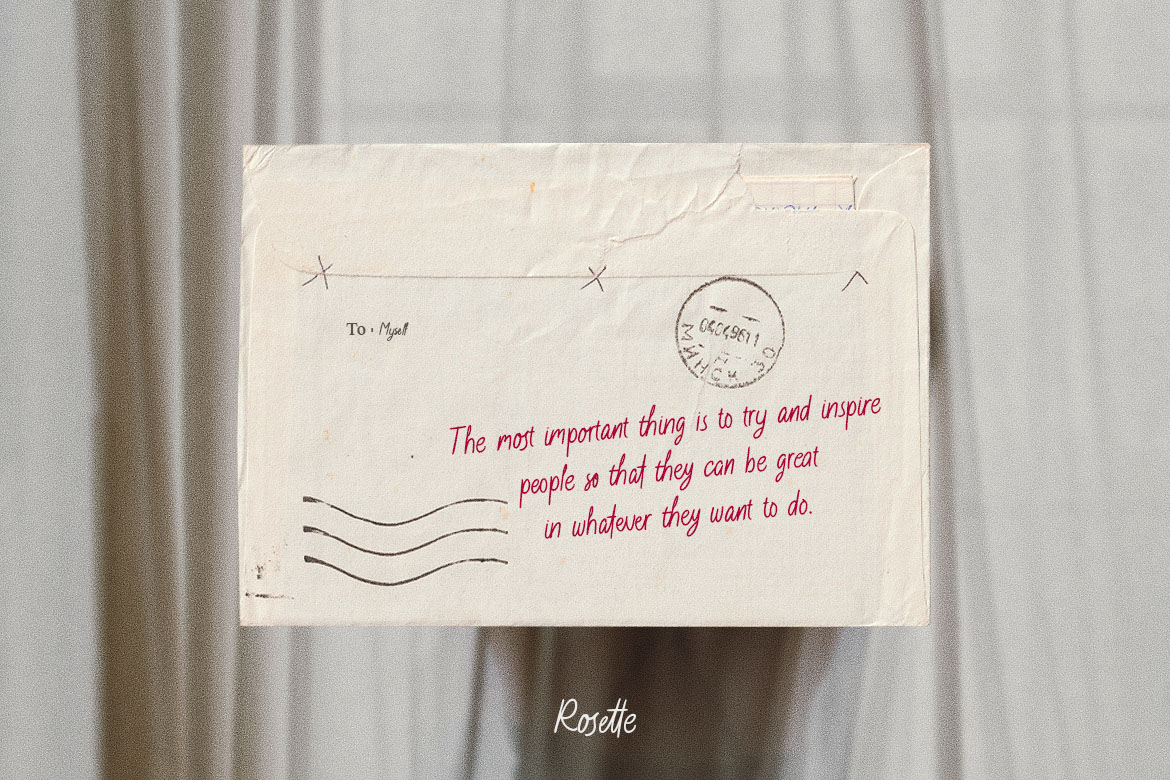 To : Myself
МИНСК 30
The most important thing is to try and inspire
people so that they can be great
in whatever they want to do.
Rosette